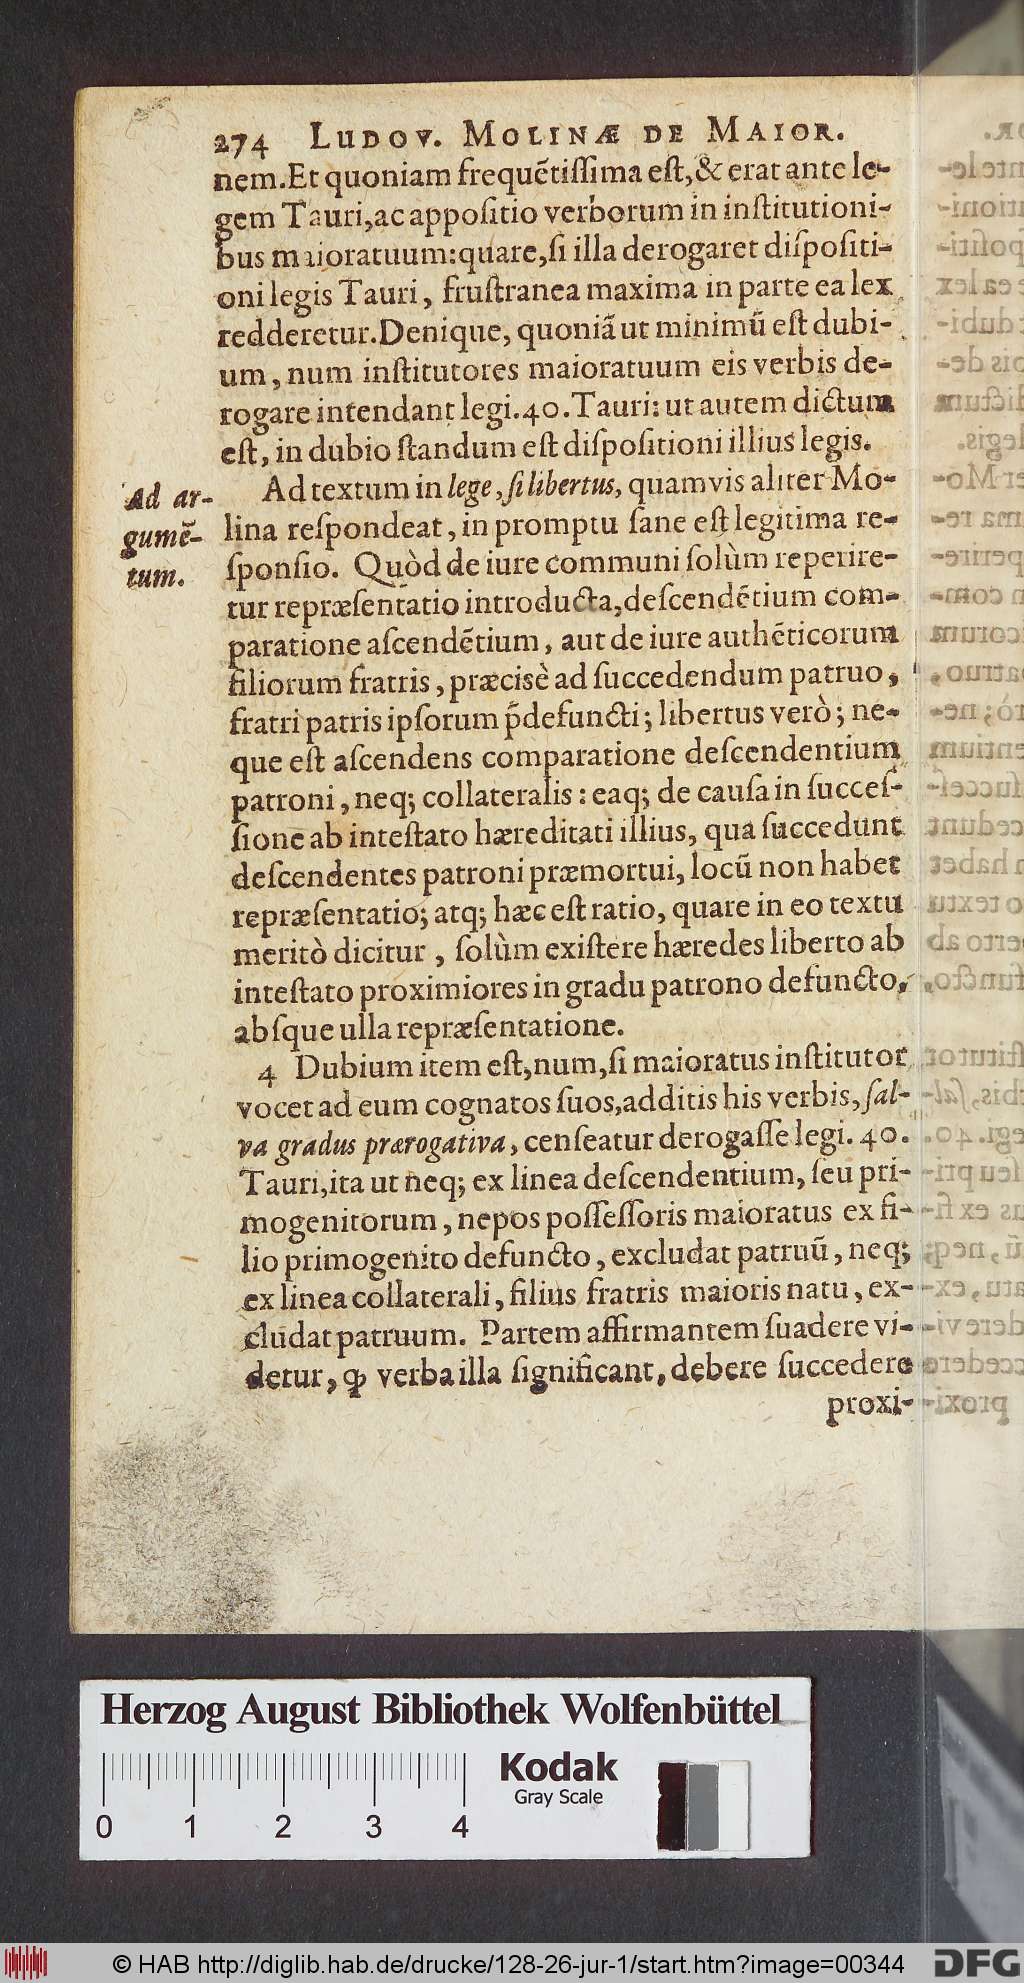 274 LUDOV. MOLINÆ DE MAIOR.
nem. Et quoniam frequẽtiſſima eſt, & erat ante le-
gem Tauri, ac appoſitio verborum in inſtitutioni-
bus maioratuum: quare, ſi illa derogaret diſpoſiti-
oni legis Tauri, fruſtranea maxima in parte ea lex
redderetur. Denique, quoniã ut minimũ eſt dubi-
um, num inſtitutores maioratuum eis verbis de-
rogare intendant legi. 40. Tauri: ut autem dictum
eſt, in dubio ſtandum eſt diſpoſitioni illius legis.
Ad ar-
gumẽ-
tum.
Ad textum in lege, ſi libertus, quamvis aliter Mo-
lina reſpondeat, in promptu ſane eſt legitima re-
ſponſio. Quòd de iure communi ſolùm reperire-
tur repræſentatio introducta, deſcendẽtium com-
paratione aſcendẽtium, aut de iure authẽticorum
filiorum fratris, præcisè ad ſuccedendum patruo,
fratri patris ipſorum p̃defuncti; libertus verò; ne-
que eſt aſcendens comparatione deſcendentium
patroni, neq; collateralis: eaq; de cauſa in ſucceſ-
ſione ab inteſtato hæreditati illius, qua ſuccedunt
deſcendentes patroni præmortui, locũ non habet
repræſentatio; atq; hæc eſt ratio, quare in eo textu
meritò dicitur, ſolùm exiſtere hæredes liberto ab
inteſtato proximiores in gradu patrono defuncto,
abſque ulla repræſentatione.
4 Dubium item eſt, num, ſi maioratus inſtitutor
vocet ad eum cognatos ſuos, additis his verbis, ſal-
va gradus prærogativa, cenſeatur derogaſſe legi. 40.
Tauri, ita ut neq; ex linea deſcendentium, ſeu pri-
mogenitorum, nepos poſſeſſoris maioratus ex fi-
lio primogenito defuncto, excludat patruũ, neq;
ex linea collaterali, filius fratris maioris natu, ex-
cludat patruum. Partem affirmantem ſuadere vi-
detur, ꝙ verba illa ſignificant, debere ſuccedere
proxi-
Herzog August Bibliothek Wolfenbüttel
Kodak
Gray Scale
0 1 2 3 4
© HAB http://diglib.hab.de/drucke/128-26-jur-1/start.htm?image=00344
DFG